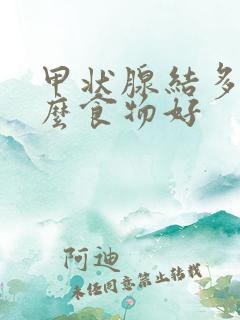 甲状腺結多
麼食物好
阿迪
未任同意禁止转载